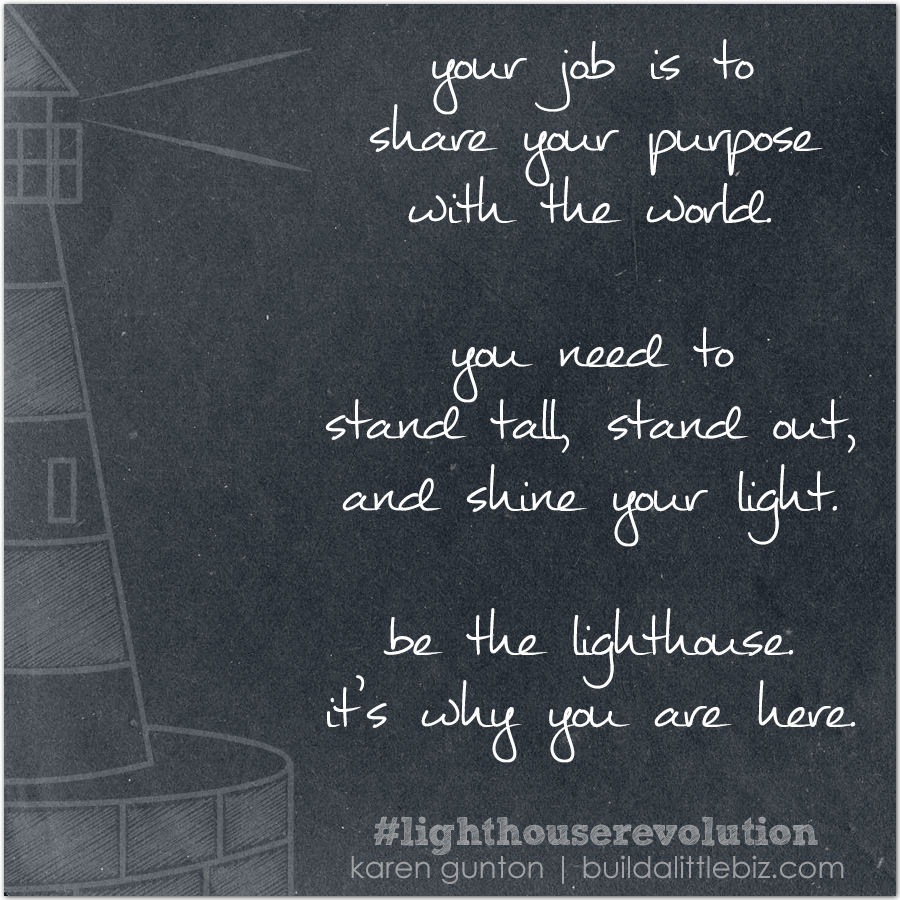 your job is to
share your purpose
with the world.
you need to
stand tall, stand out,
and shine your light.
be the lighthouse.
it's why you are here.
#lighthouserevolution
karen gunton | buildalittlebiz.com